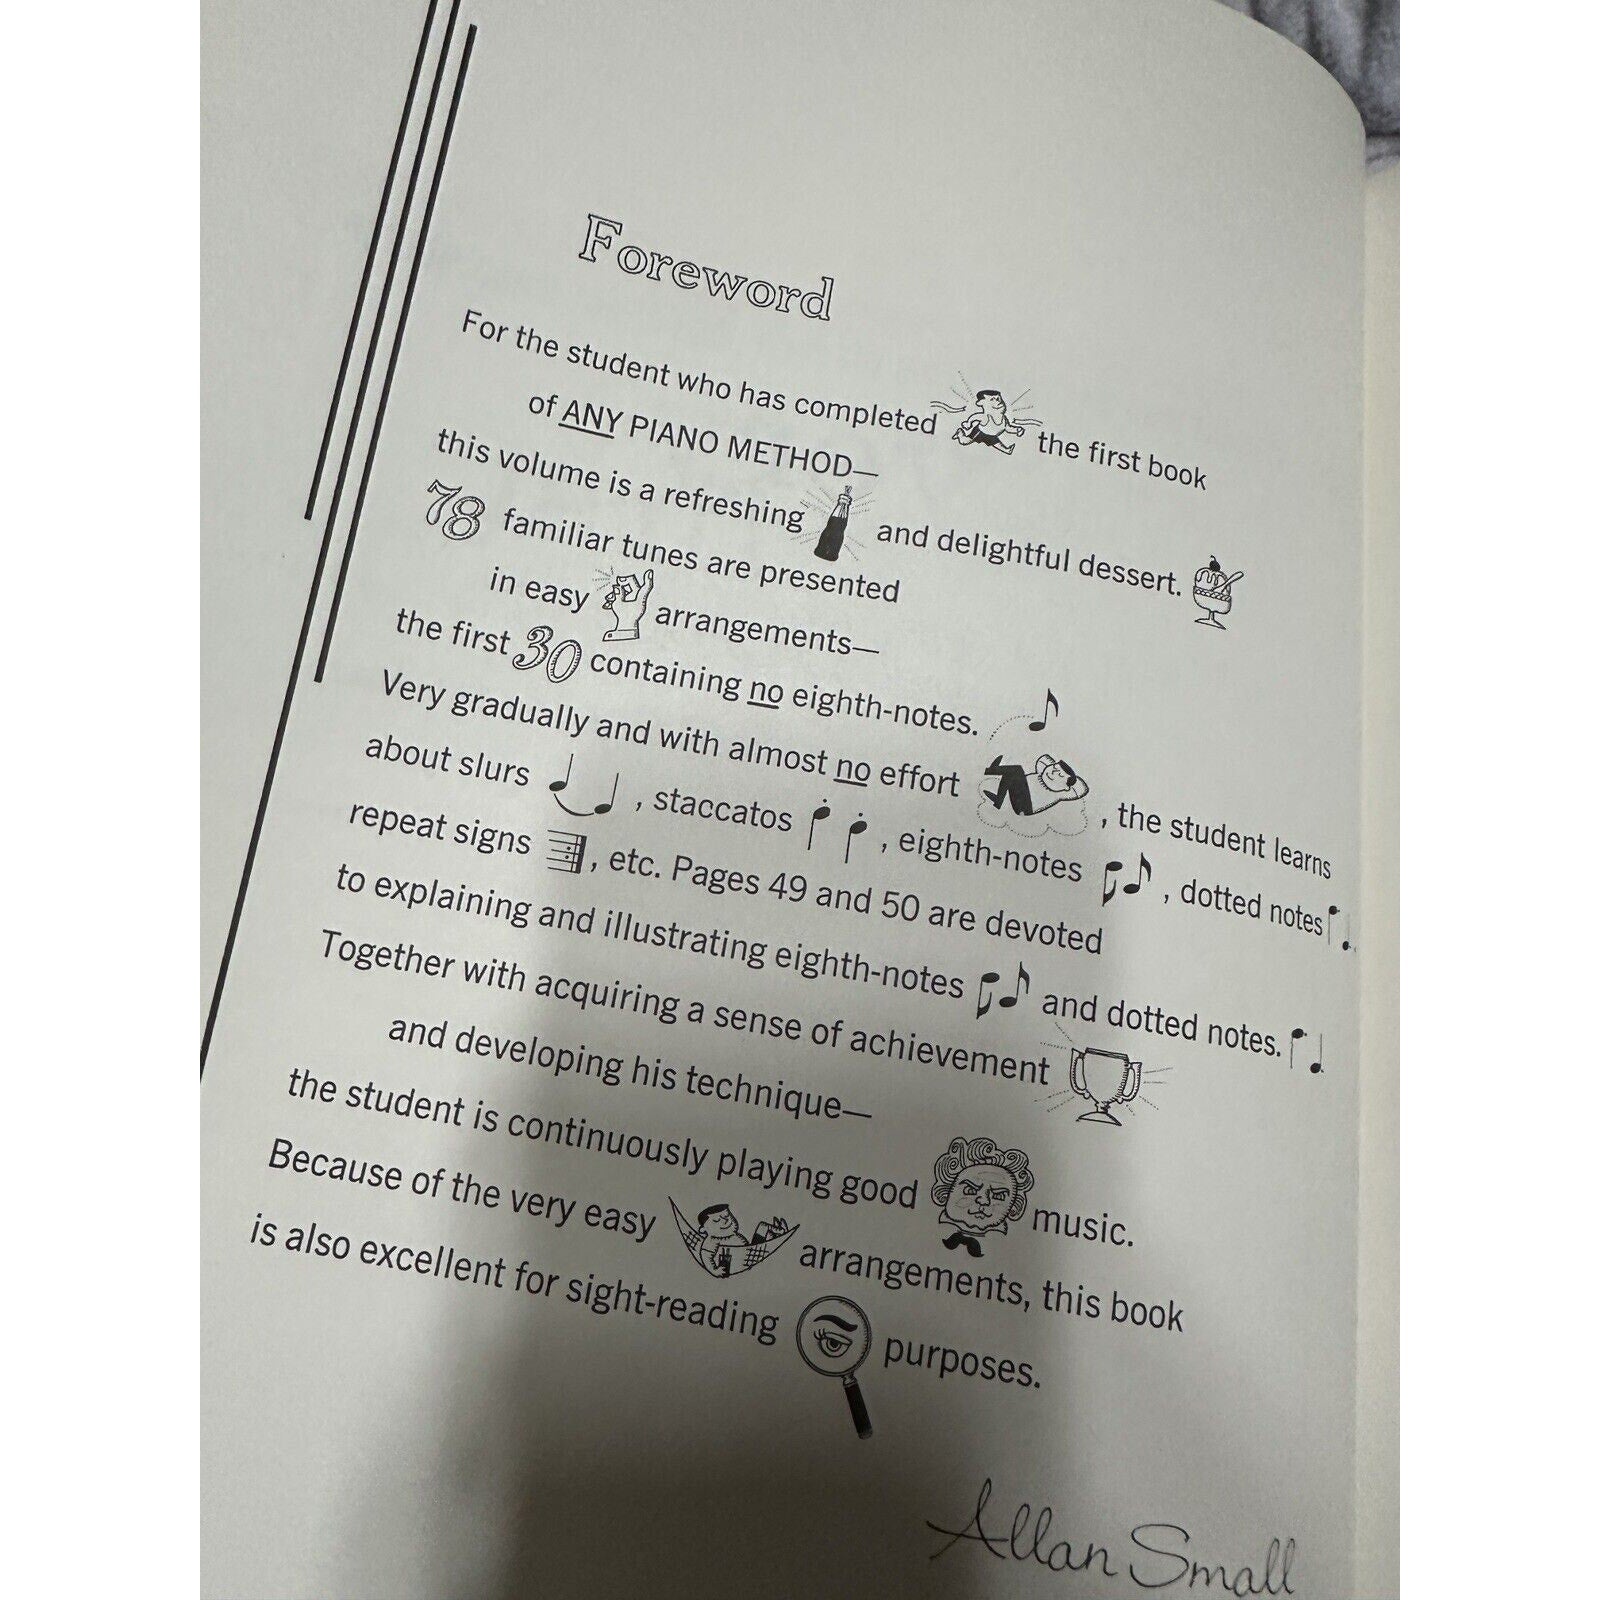 Foreword
For the student who has completed the first book
of ANY PIANO METHOD—
this volume is a refreshing and delightful dessert.
78 familiar tunes are presented
in easy arrangements—
the first 30 containing no eighth-notes.
Very gradually and with almost no effort, the student learns
about slurs, staccatos, eighth-notes, dotted notes
repeat signs, etc. Pages 49 and 50 are devoted
to explaining and illustrating eighth-notes and dotted notes.
Together with acquiring a sense of achievement
and developing his technique—
the student is continuously playing good music.
Because of the very easy arrangements, this book
is also excellent for sight-reading purposes.
Allan Small